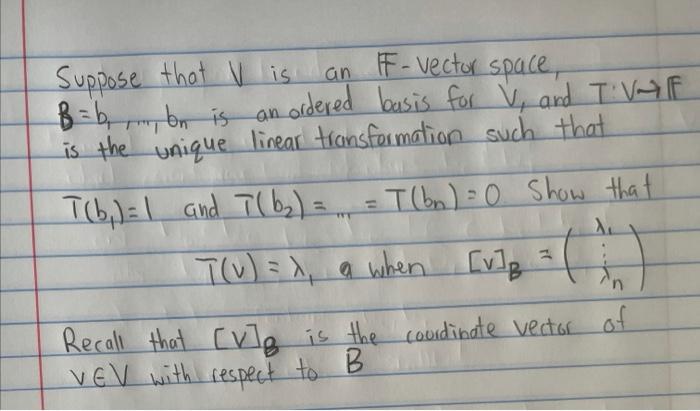 Suppose that V is an 𝔽-vector space,
B = b₁, ..., bₙ is an ordered basis for V, and T: V → 𝔽
is the unique linear transformation such that
T(b₁) = 1 and T(b₂) = ... = T(bₙ) = 0. Show that
T(v) = λ₁ when [v]_B = (λ₁ ⋮ λₙ)
Recall that [v]_B is the coordinate vector of
v ∈ V with respect to B